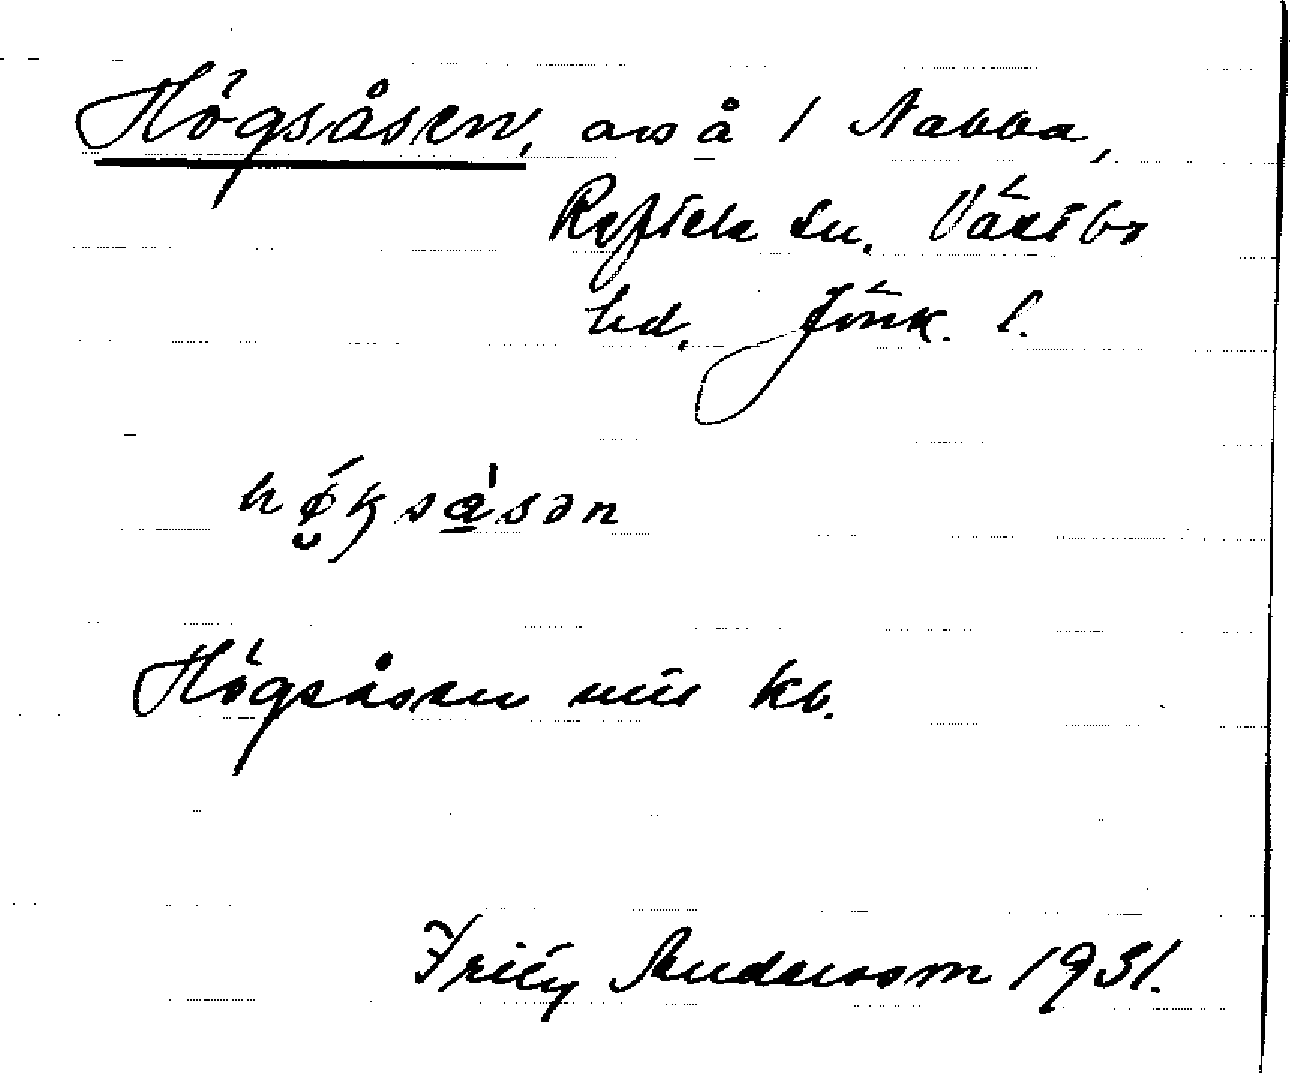 Högsåsen, avs å 1 Nabba,
Reftele sn. Västbo
hd. Jönk. l.
hø̀ksa̠̍sən
Högsåsen mtl kb.
Fritz Andersson 1931.